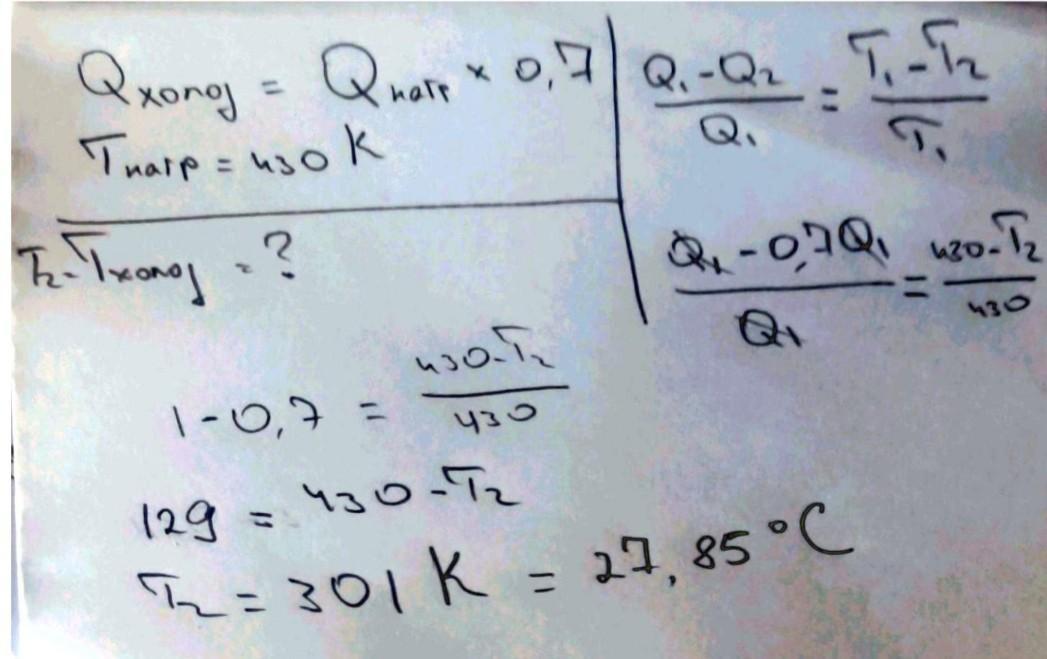 Qхолод = Qнагр × 0,7
Tнагр = 430 K
T₂-Tхолод = ?
(Q₁-Q₂)/Q₁ = (T₁-T₂)/T₁
(Q₁-0,7Q₁)/Q₁ = (430-T₂)/430
1-0,7 = (430-T₂)/430
129 = 430-T₂
T₂ = 301 K = 27,85°C